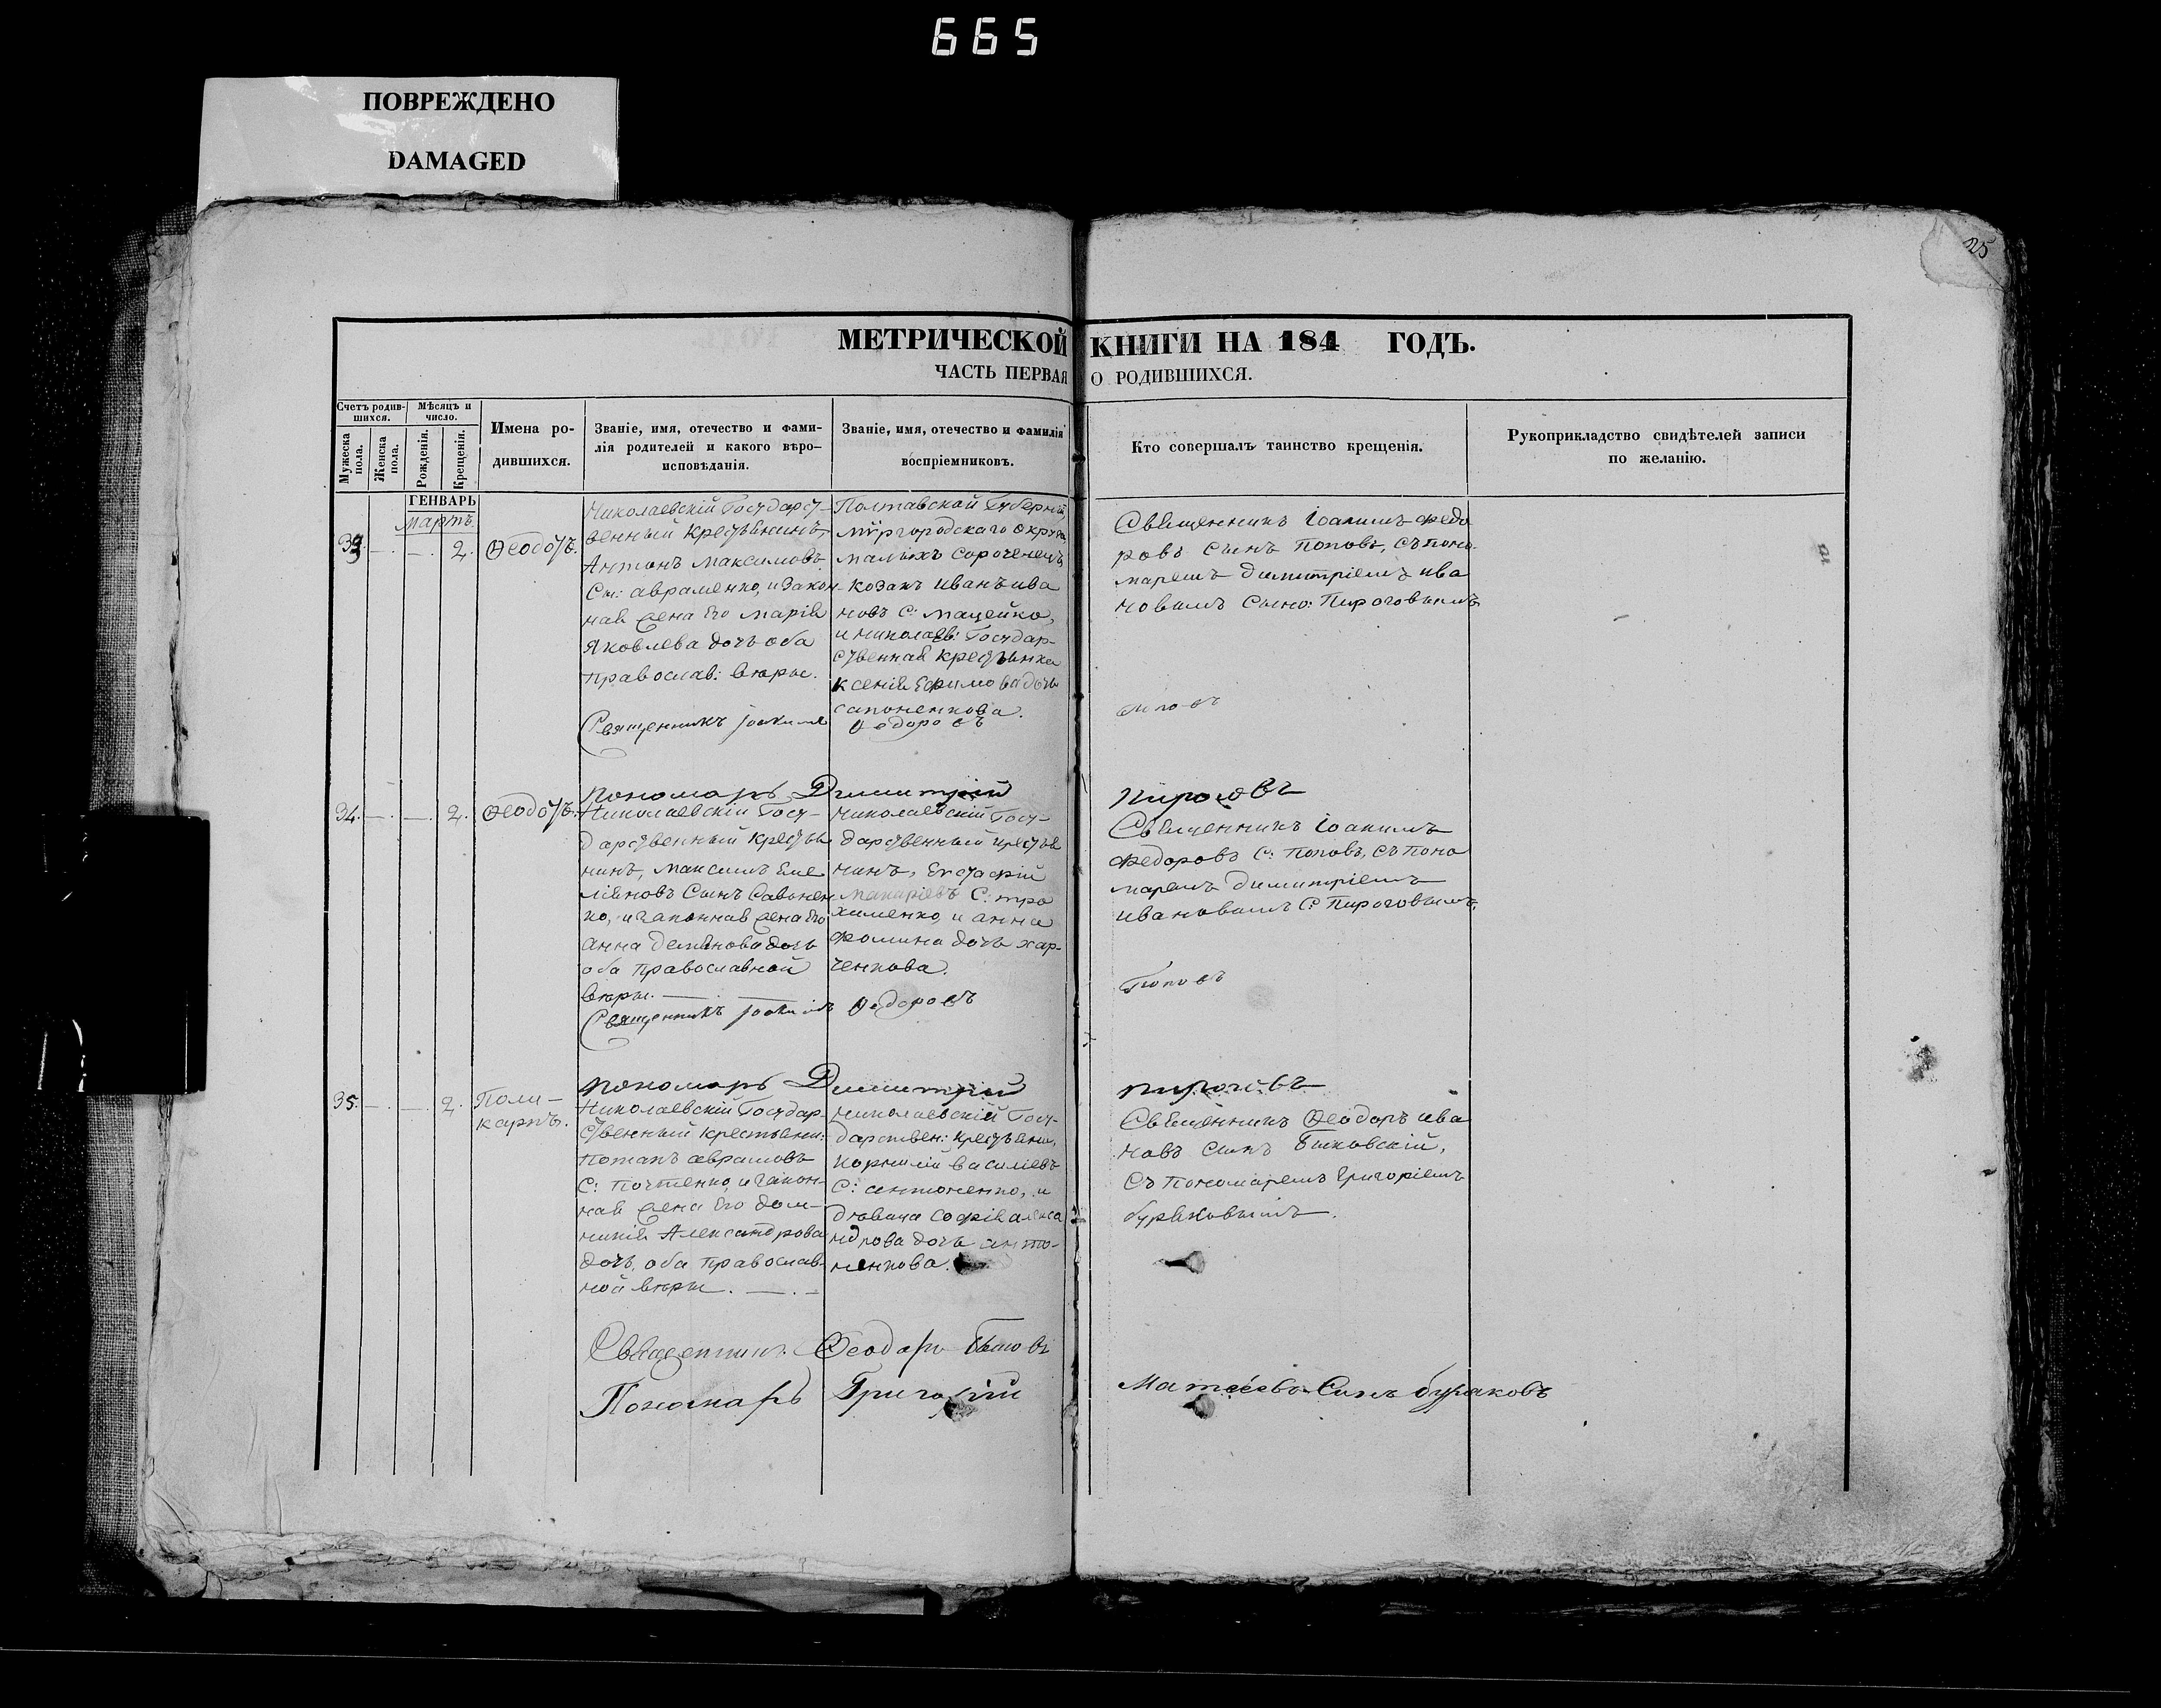 665
ПОВРЕЖДЕНО
DAMAGED
25
МЕТРИЧЕСКОЙ КНИГИ НА 184 ГОДЪ.
ЧАСТЬ ПЕРВАЯ О РОДИВШИХСЯ.
Счетъ родив-
шихся.
Мѣсяцъ и
число.
Мужеска
пола.
Женска
пола.
Рожденія.
Крещенія.
Имена ро-
дившихся.
Званіе, имя, отечество и фами-
лія родителей и какого вѣро-
исповѣданія.
Званіе, имя, отечество и фамилія
воспріемниковъ.
Кто совершалъ таинство крещенія.
Рукоприкладство свидѣтелей записи
по желанію.
ГЕНВАРЬ
Мартъ.
33. 2. Ѳеодотъ.
Николаевскій Государст-
венный крестьянинъ,
Антонъ Максимовъ
Сы: Авраменко, и закон-
ная жена его Марія
Яковлева дочь оба
православ: вѣры.
Полтавской Губерніи,
Миргородскаго округа,
малыхъ Сороченецъ
козакъ Иванъ Ива
новъ С: Мацейко,
и николаев: Государ-
ственная крестьянка
Ксенія Ефимова дочь
Сапоненкова.
Священникъ Іоакимъ Ѳедо
ровъ сынъ Поповъ, съ поно-
маремъ Димитріемъ Ива
новымъ сыно: Пироговымъ
Священникъ Іоакимъ Федоровъ
Поповъ
Пономарь Димитрій Пироговъ
34. 2. Ѳеодотъ.
Николаевскій Госу-
дарственный крестья
нинъ, Максимъ Еме
ліяновъ Сынъ Савонен
ко, и законная жена его
Анна Демянова дочь
оба православной
вѣры.
Николаевскій Госу-
дарственный крестья
нинъ, Евстафій
Макаріевъ С: Тро
хименко, и Анна
Фомина дочь Хар-
ченкова.
Священникъ Іоакимъ
Федоровъ С: Поповъ, съ поно
маремъ Димитріемъ
Ивановымъ С: Пироговымъ.
Священникъ Іоакимъ Федоровъ
Поповъ
Пономарь Димитрій Пироговъ
35. 2. Поли-
карпъ.
Николаевскій Государ-
ственный крестьяни:
Потапъ Аврамовъ
С: Почтенко, и закон-
ная жена его Дом-
никія Александрова
дочь, оба православ-
ной вѣры.
Николаевскій Госу-
дарствен: крестьяни,
Корнилій Василіевъ
С: Антоненко, и
дѣвица Софія Алекса
ндрова дочь Анто-
ненкова.
Священникъ Ѳеодоръ Ива
новъ сынъ Быковскій,
съ пономаремъ Григоріемъ
Буряковымъ.
Священникъ Ѳеодоръ
Пономарь Григорій Матѳеевъ Сынъ Буряковъ